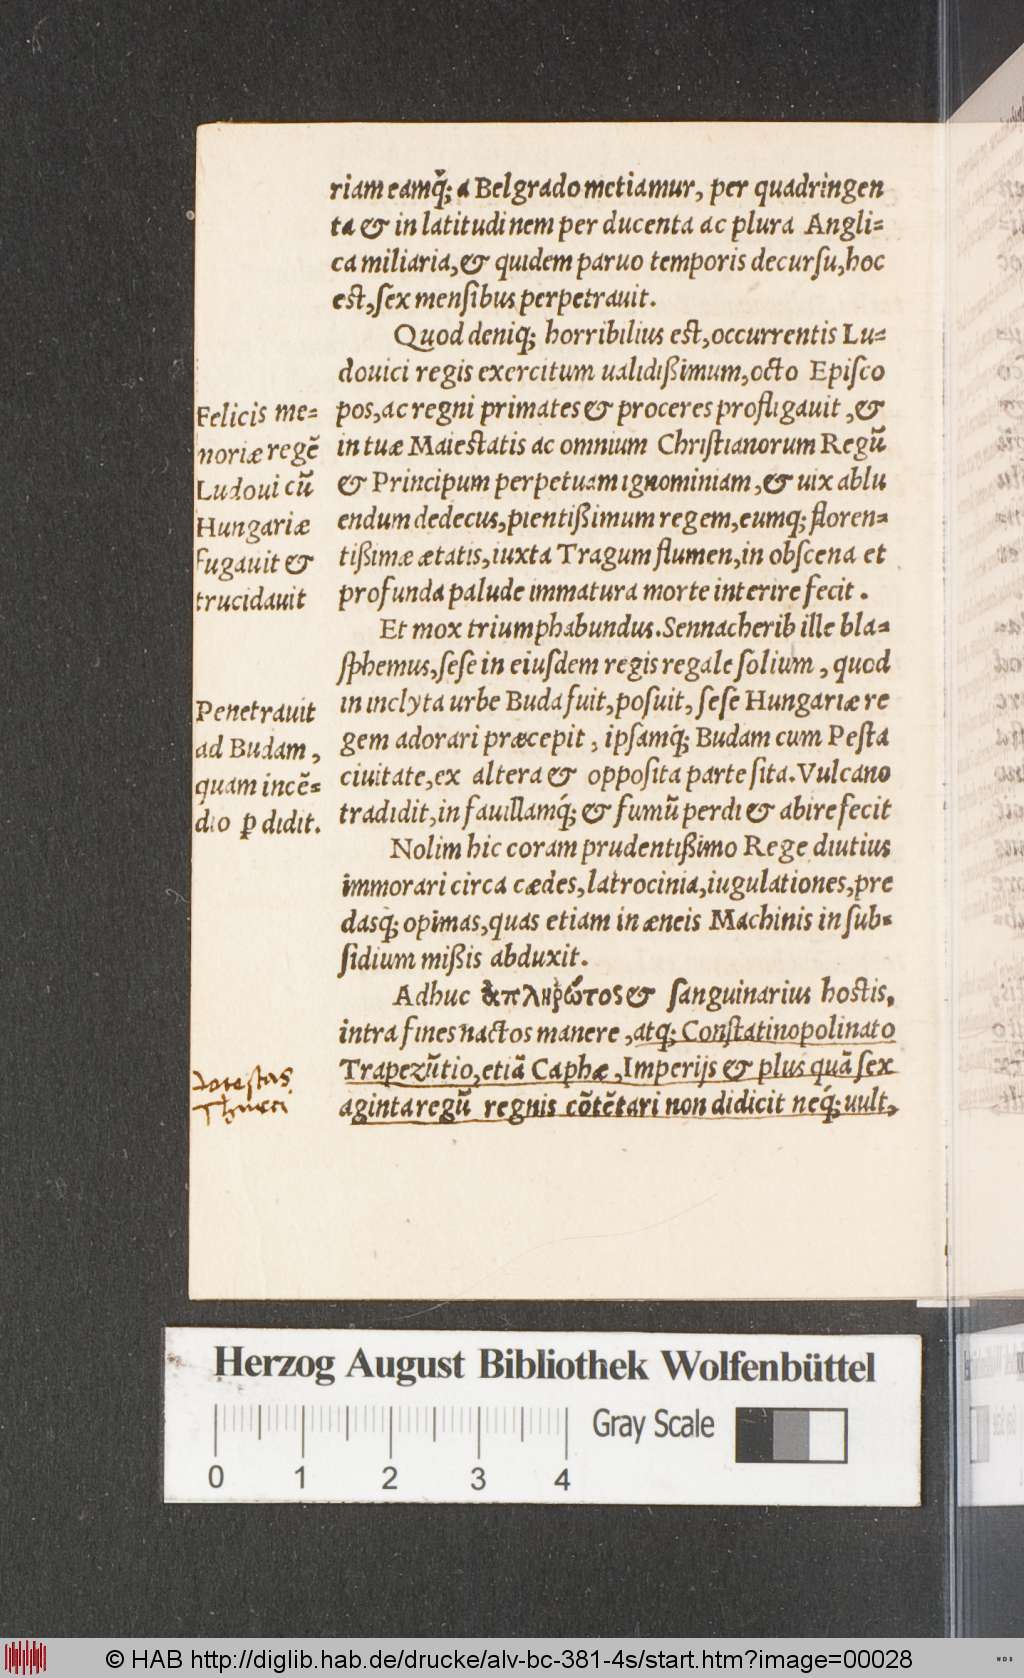 riam eamq́; a Belgrado metiamur, per quadringen
ta & in latitudinem per ducenta ac plura Angli=
ca miliaria, & quidem paruo temporis decursu, hoc
est, sex mensibus perpetrauit.
Quod deniq; horribilius est, occurrentis Lu=
douici regis exercitum ualidißimum, octo Episco
pos, ac regni primates & proceres profligauit, &
in tuæ Maiestatis ac omnium Christianorum Regũ
& Principum perpetuam ignominiam, & uix ablu
endum dedecus, pientißimum regem, eumq; floren=
tißimæ ætatis, iuxta Tragum flumen, in obscena et
profunda palude immatura morte interire fecit.
Felicis me=
moriæ regẽ
Ludoui cũ
Hungariæ
fugauit &
trucidauit
Et mox triumphabundus. Sennacherib ille bla=
sphemus, sese in eiusdem regis regale solium, quod
in inclyta urbe Buda fuit, posuit, sese Hungariæ re
gem adorari præcepit, ipsamq́; Budam cum Pesta
ciuitate, ex altera & opposita parte sita. Vulcano
tradidit, in fauillamq́; & fumũ perdi & abire fecit
Penetrauit
ad Budam,
quam incẽ=
dio ꝑ didit.
Nolim hic coram prudentißimo Rege diutius
immorari circa cædes, latrocinia, iugulationes, pre
dasq́; opimas, quas etiam in æneis Machinis in sub=
sidium mißis abduxit.
Adhuc ἀπληρώτος & sanguinarius hostis,
intra fines nactos manere, atq; Constatinopolinato
Trapezũtio, etiã Caphæ, Imperijs & plus quã sex
aginta regũ regnis cõtẽtari non didicit neq́; uult,
potestas
Thurci
Herzog August Bibliothek Wolfenbüttel
Gray Scale
0 1 2 3 4
© HAB http://diglib.hab.de/drucke/alv-bc-381-4s/start.htm?image=00028